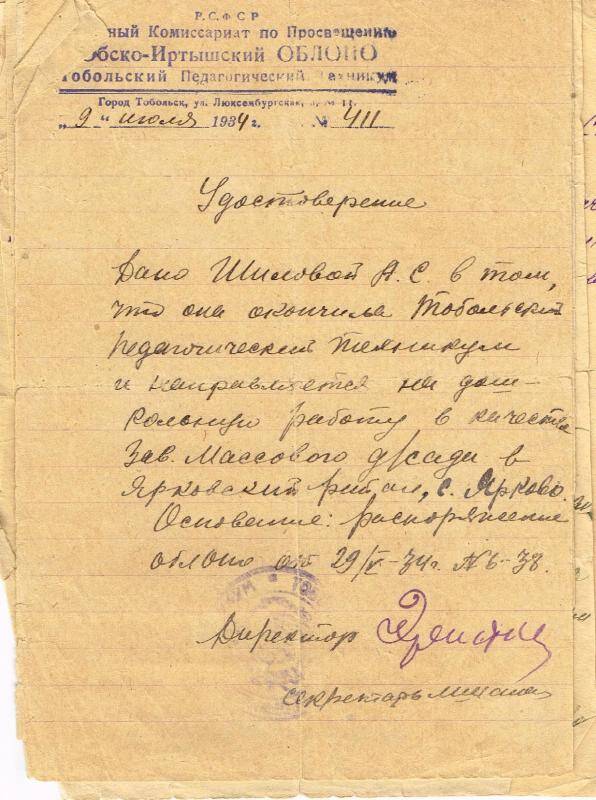 Р.С.Ф С Р
ный Комиссариат по Просвещению
бско-Иртышский ОБЛОНО
Тобольский Педагогический Техникум
Город Тобольск, ул. Люксембургская,
„ 9 " июля 1934 г. № 411
Удостоверение
Дано Шиловой А. С. в том,
что она окончила Тобольский
педагогический техникум
и направляется на дош-
кольную работу в качестве
Зав. Массового д/сада в
Ярковский район, с. Ярково.
Основание: распоряжение
облоно от 29/V-34г. № 6-38.
Директор
секретарь